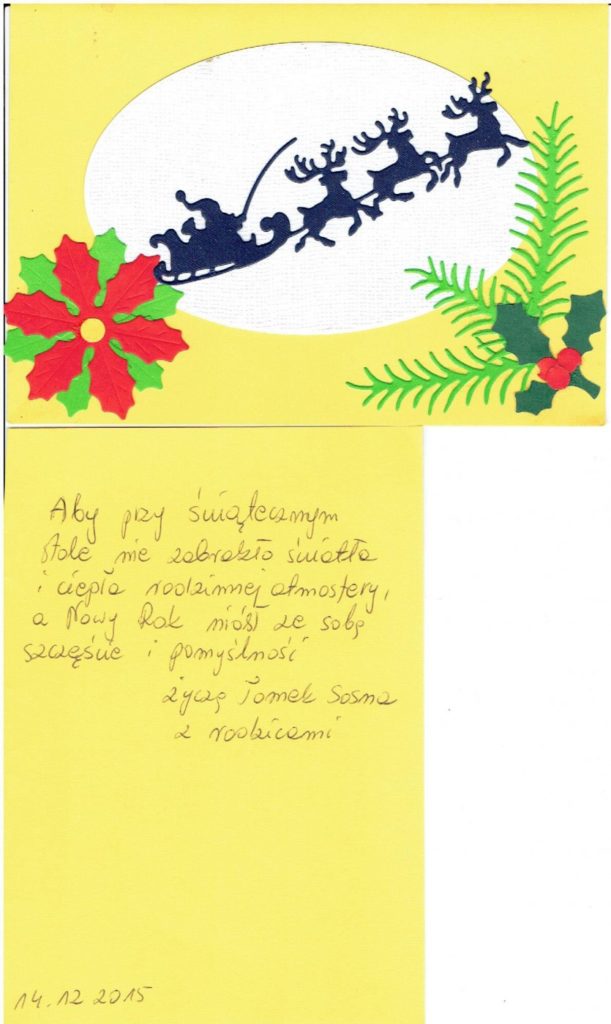 Aby przy świątecznym
stole nie zabrakło światła
i ciepła rodzinnej atmosfery,
a Nowy Rok niósł ze sobą
szczęście i pomyślność
życzę Tomek Sosna
z rodzicami
14.12 2015